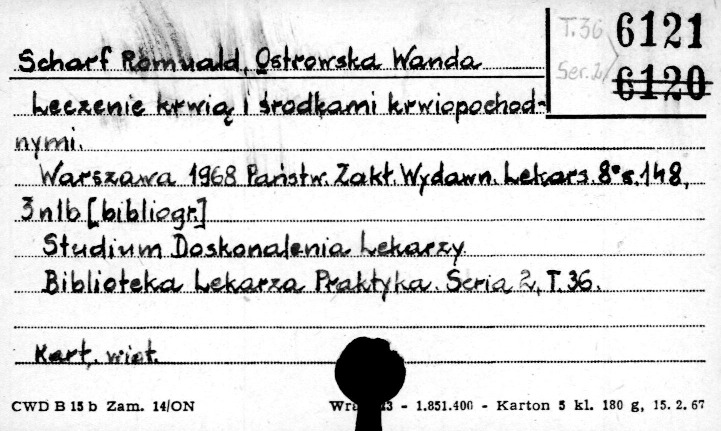 T.36 6121
Scharf Romuald, Ostrowska Wanda
Ser.2/ 6120
Leczenie krwią i środkami krwiopochod-
nymi.
Warszawa 1968 Państw. Zakł. Wydawn. Lekars. 8° s. 148,
3 nlb [bibliogr.]
Studium Doskonalenia Lekarzy
Biblioteka Lekarza Praktyka. Seria 2, T. 36.
Kart. wiet.
CWD B 15 b Zam. 14/ON
- 1.851.400 - Karton 5 kl. 180 g, 15. 2. 67